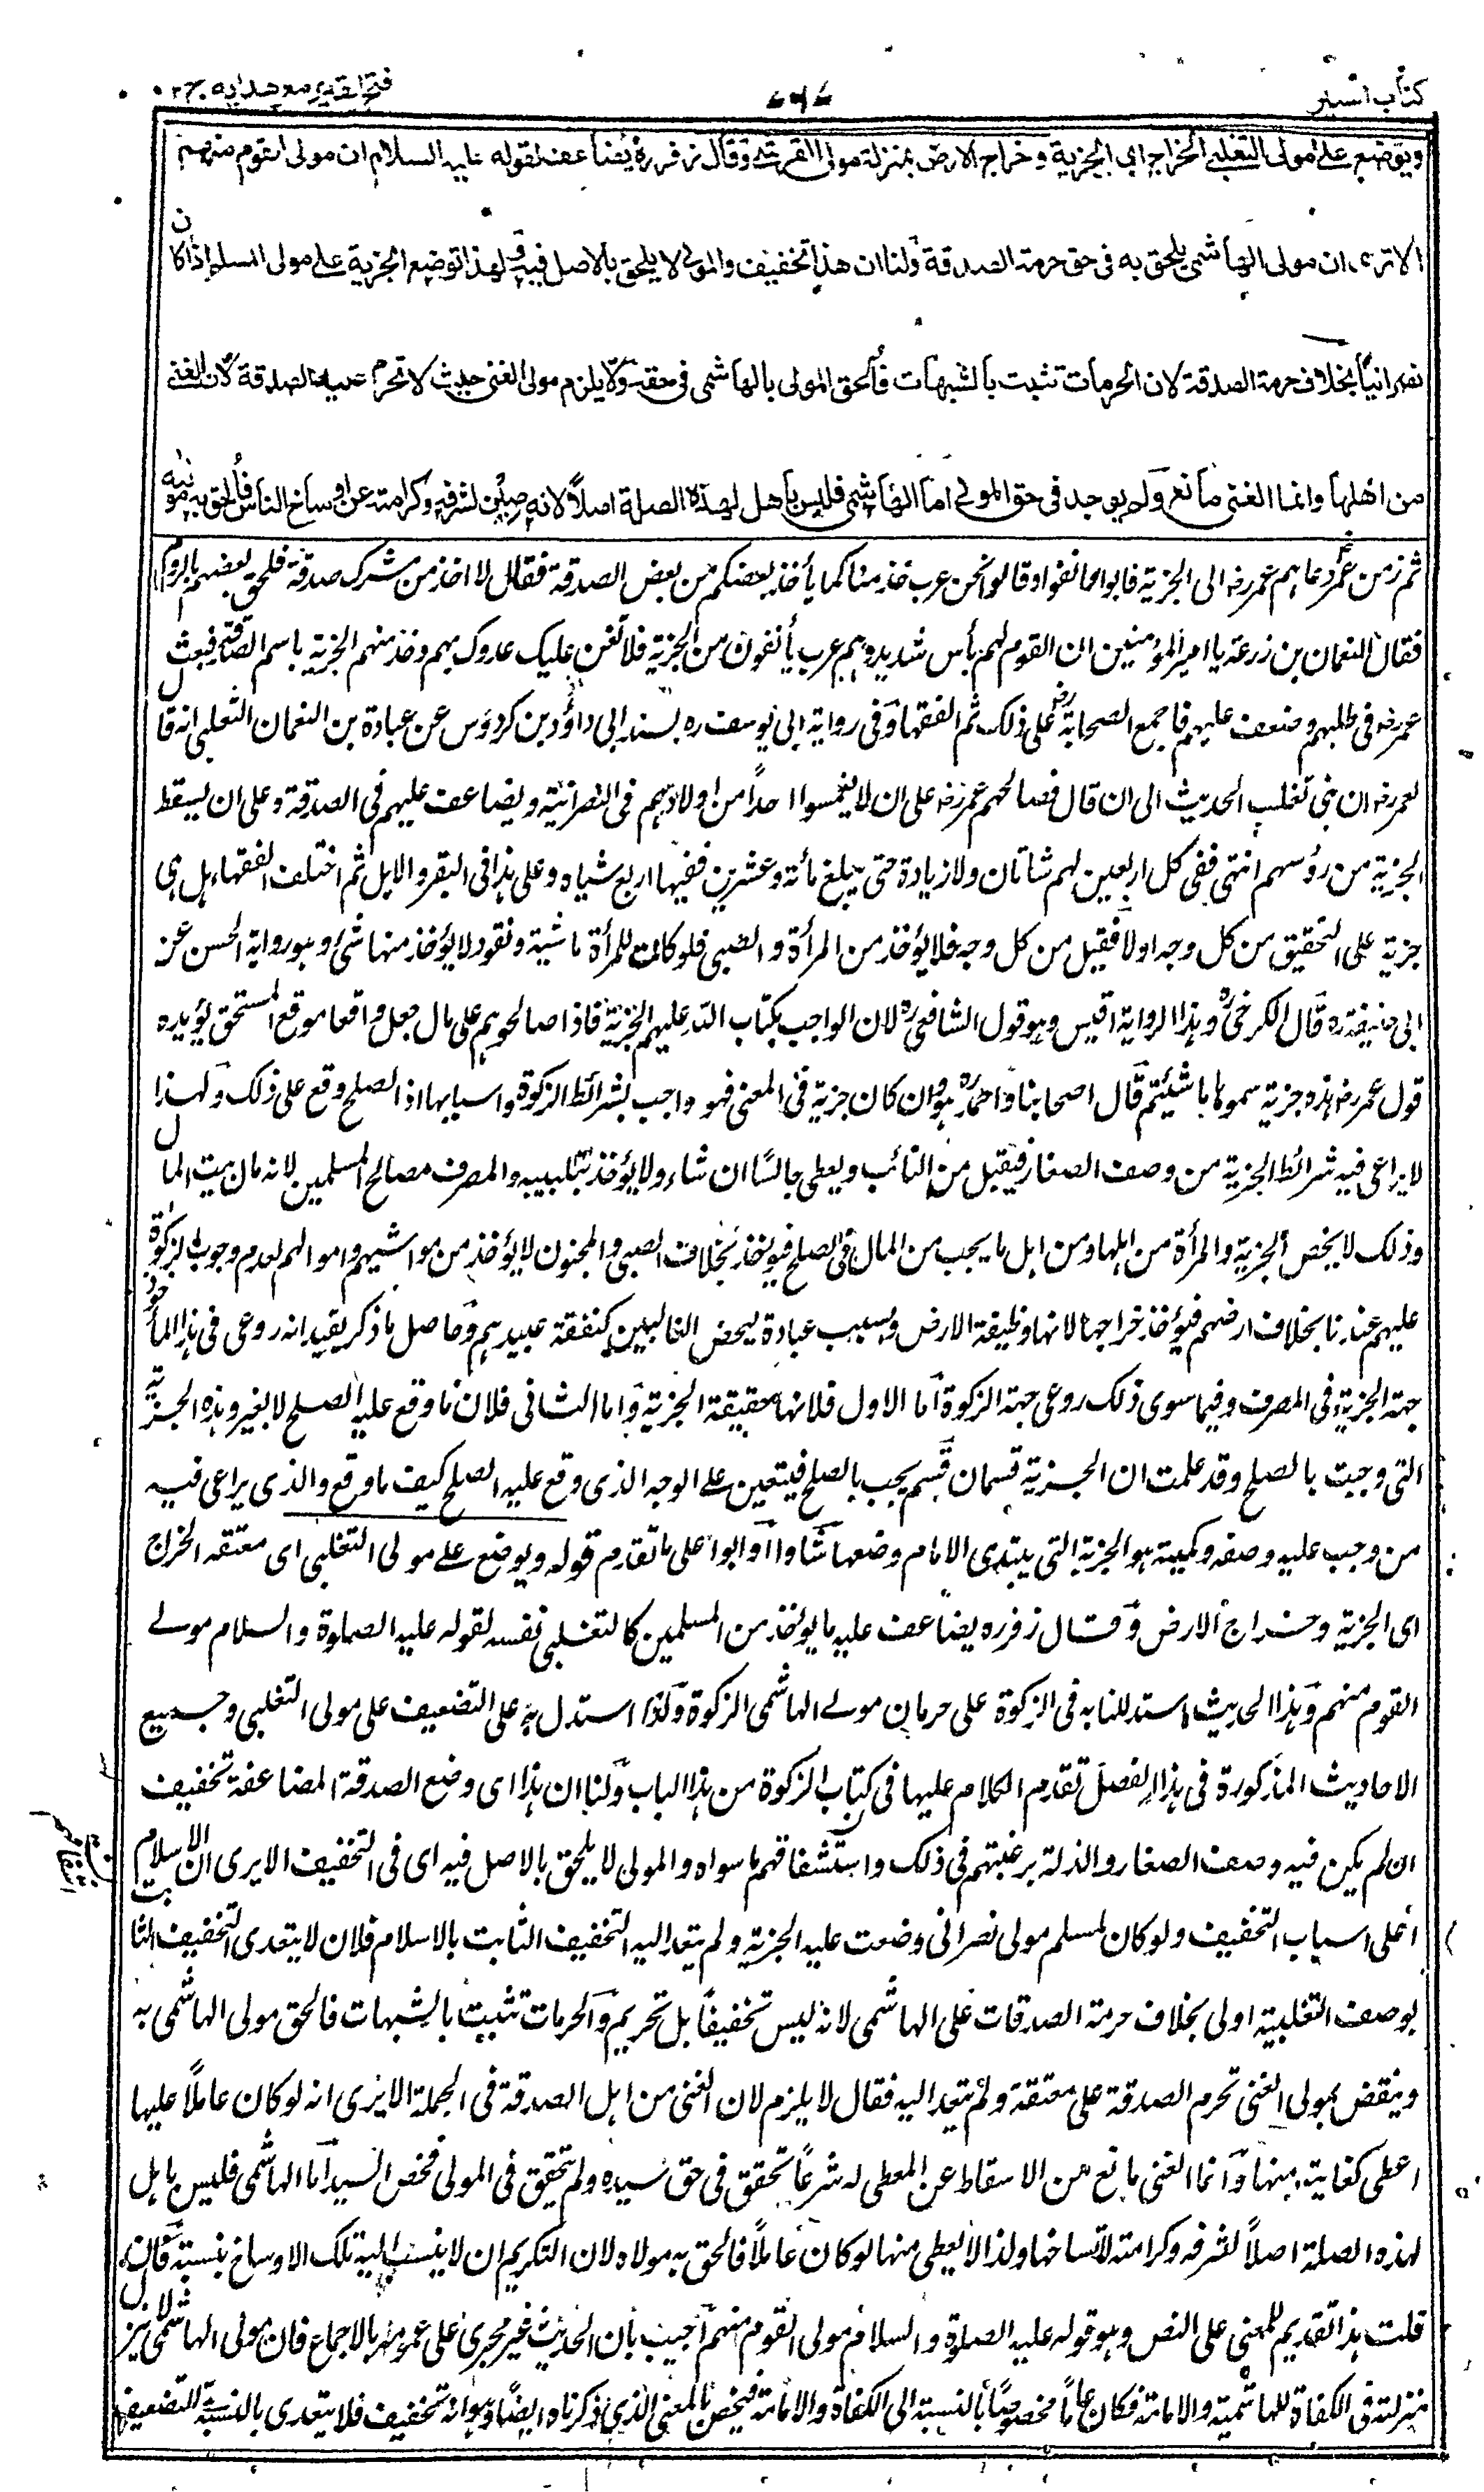 كتاب السير
٤٧٤
فتح القدير مع هدايه ج ٢
ويوضع على مولى التغلبي الخراج اي الجزية وخراج الارض بمنزلة مولى القرشي وقال زفر ره يضاعف لقوله عليه السلام ان مولى القوم منهم
الا ترى ان مولى الهاشمي يلحق به في حق حرمة الصدقة ولنا ان هذا تخفيف والمولى لا يلحق بالاصل فيه ولهذا توضع الجزية على مولى المسلم اذا كان
نصرانيا بخلاف حرمة الصدقة لان الحرمات تثبت بالشبهات فألحق المولى بالهاشمي في حقه ولا يلزم مولى الغني حيث لا تحرم عليه الصدقة لان الغني
من اهلها وانما الغنى مانع ولم يوجد في حق المولى اما الهاشمي فليس بأهل لهذه الصلة اصلاً لانه صين لشرفه وكرامته عن اوساخ الناس فألحق به مولاه
ثم زمن عمر دعاهم عمر رضه الى الجزية فابوا وانفوا وقالوا نحن عرب خذ منا كما يأخذ بعضكم من بعض الصدقة فقال لا اخذ من مشرك صدقة فلحق بعضهم بالروم
فقال النعمان بن زرعة يا امير المؤمنين ان القوم لهم بأس شديد وهم عرب يأنفون من الجزية فلا تعن عليك عدوك بهم وخذ منهم الجزية باسم الصدقة فبعث
عمر رضه في طلبهم وضعف عليهم فاجمع الصحابة رض على ذلك ثم الفقهاء وفي رواية ابي يوسف ره بسنده الى داؤد بن كردوس عن عبادة بن النعمان التغلبي انه قال
لعمر رضه ان بني تغلب الحديث الى ان قال فصالحهم عمر رضه على ان لا يغمسوا احداً من اولادهم في النصرانية ويضاعف عليهم في الصدقة وعلى ان يسقط
الجزية من رؤسهم انتهى ففي كل اربعين لهم شاتان ولا زيادة حتى يبلغ مائة وعشرين ففيها اربع شياه وعلى هذا في البقر والابل ثم اختلف الفقهاء هل هي
جزية على التحقيق من كل وجه اولا فقيل من كل وجه فلا يؤخذ من المرأة والصبي فلو كانت للمرأة ماشية ونقود لا يؤخذ منها شئ وهو رواية الحسن عن
ابي حنيفة ره قال الكرخي ره وهذا الرواية اقيس وهو قول الشافعي ره لان الواجب بكتاب الله عليهم الجزية فاذا صالحوهم على مال جعل واقعا موقع المستحق يؤيده
قول عمر رضه هذه جزية سموها ما شئتم قال اصحابنا واحمد ره هو وان كان جزية في المعنى فهو واجب بشرائط الزكوة واسبابها اذ الصلح وقع على ذلك ولهذا
لا يراعى فيه شرائط الجزية من وصف الصغار فيقبل من النائب ويعطى جالسًا ان شاء ولا يؤخذ بتلبيبه والمصرف مصالح المسلمين لانه مال بيت المال
وذلك لا يخص الجزية والمرأة من اهلها ومن اهل ما يجب من المال في الصلح فيؤخذ بخلاف الصبي والمجنون لا يؤخذ من مواشيهم واموالهم لعدم وجوب الزكوة
عليهم عندنا بخلاف ارضهم فيؤخذ خراجها لانها وظيفة الارض وليست عبادة ليحض البالغين كنفقة عبيدهم وحاصل ما ذكر يفيد انه روعي في هذا المأخوذ
جهة الجزية في المصرف وفيما سوى ذلك روعي جهة الزكوة اما الاول فلانها حقيقة الجزية واما الثاني فلان ما وقع عليه الصلح لا يغير وهذه الجزية
التي وجبت بالصلح وقد علمت ان الجزية قسمان قسم يجب بالصلح فيتعين على الوجه الذي وقع عليه الصلح كيف ما وقع والذي يراعى فيه
من وجب عليه وصفه وكميته هو الجزية التي يبتدى الامام وضعها شاؤا او ابوا على ما تقدم قوله ويوضع على مولى التغلبي اى معتقه الخراج
اى الجزية وخراج الارض وقال زفر ره يضاعف عليه ما يؤخذ من المسلمين كالتغلبي نفسه لقوله عليه الصلوة والسلام مولى
القوم منهم وهذا الحديث استدللنا به في الزكوة على حرمان مولى الهاشمي الزكوة وكذا استدل به على التضعيف على مولى التغلبي وجميع
الاحاديث المذكورة في هذا الفصل تقدم الكلام عليها في كتاب الزكوة من هذا الباب ولنا ان هذا اى وضع الصدقة المضاعفة تخفيف
ان لم يكن فيه وصف الصغار والذلة برغبتهم في ذلك واستشقاقهم ما سواه والمولى لا يلحق بالاصل فيه اى في التخفيف الا يرى ان الاسلام
اعلى اسباب التخفيف ولو كان لمسلم مولى نصراني وضعت عليه الجزية ولم يتعد اليه التخفيف الثابت بالاسلام فلان لا يتعدى التخفيف الثابت
بوصف التغلبية اولى بخلاف حرمة الصدقات على الهاشمي لانه ليس تخفيفاً بل تحريم والحرمات تثبت بالشبهات فالحق مولى الهاشمي به
وينقض بمولى الغني تحرم الصدقة على معتقه ولم يتعد اليه فقال لا يلزم لان الغني من اهل الصدقة في الجملة الا يرى انه لو كان عاملاً عليها
اعطى كفايته منها وانما الغنى مانع من الاسقاط عن المعطى له شرعاً تحقق في حق سيده ولم يتحقق في المولى فخص السيد اما الهاشمي فليس باهل
لهذه الصلة اصلاً لشرفه وكرامته لاتساخها ولذا لا يعطى منها لو كان عاملاً فالحق به مولاه لان التكريم ان لا ينسب اليه تلك الاوساخ بنسبة فان
قلت هذا تقديم للمعنى على النص وهو قوله عليه الصلوة والسلام مولى القوم منهم اجيب بأن الحديث غير مجرى على عمومه بالاجماع فان مولى الهاشمي لا ينزل
منزلته في الكفاءة للهاشمية والامامة فكان عاماً مخصوصًا بالنسبة الى الكفاءة والامامة فيخص بالمعنى الذي ذكرناه ايضًا وهو انه تخفيف فلا يتعدى بالنسبة للتضعيف